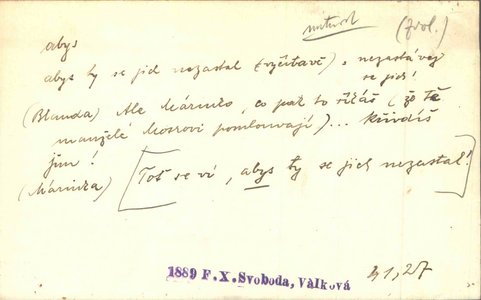 mítivost (zvol.)
abys
abys ty se jich nezastal (vyčítavě) = nezastávej
se jich!
(Blanda) Ale Márinko, co pak to říkáš (že Tě
manželé Mosrovi pomlouvají)... Křivdíš
jim!
(Márinka) [Toť se ví, abys ty se jich nezastal!]
1889 F. X. Svoboda, Válková
41,27